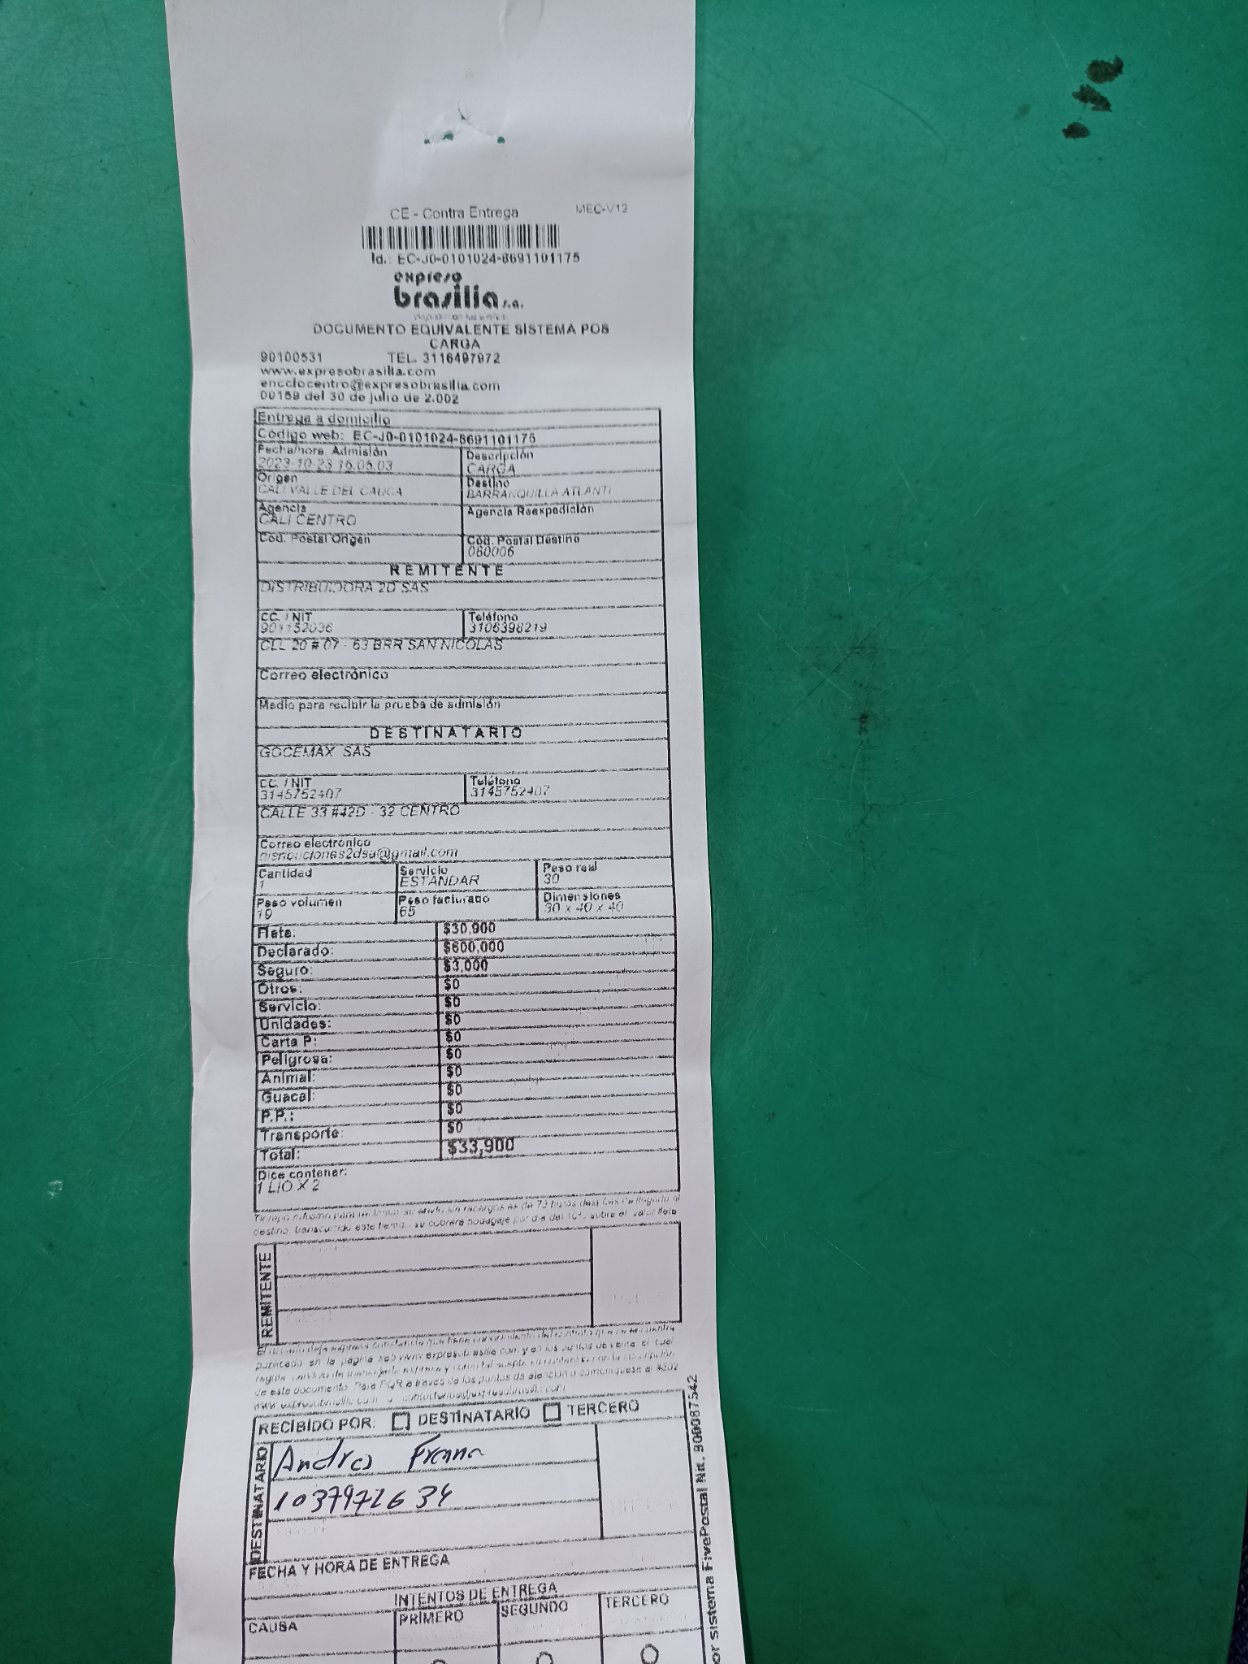 CE - Contra Entrega MEC-V12
Id.: EC-J0-0101024-8691101175
expreso
brasilia s.a.
DOCUMENTO EQUIVALENTE SISTEMA POS
CARGA
90100531 TEL. 3116497972
www.expresobrasilia.com
encclocentro@expresobrasilia.com
00159 del 30 de julio de 2.002
Entrega a domicilio
Código web: EC-J0-0101024-8691101175
Fecha/hora Admisión Descripción
2023-10-23 16:05:03 CARGA
Origen Destino
CALI VALLE DEL CAUCA BARRANQUILLA ATLANTI
Agencia Agencia Reexpedición
CALI CENTRO
Cod. Postal Origen Cod. Postal Destino
080006
REMITENTE
DISTRIBUIDORA 2D SAS
CC. / NIT Teléfono
901152036 3106398219
CLL 20 # 07 - 63 BRR SAN NICOLAS
Correo electrónico
Medio para recibir la prueba de admisión
DESTINATARIO
GOCEMAX SAS
CC. / NIT Teléfono
3145752407 3145752407
CALLE 33 #42D - 32 CENTRO
Correo electrónico
Cantidad Servicio Peso real
1 ESTANDAR 30
Peso volumen Peso facturado Dimensiones
19 65 30 x 40 x 40
Flete: $30,900
Declarado: $600,000
Seguro: $3,000
Otros: $0
Servicio: $0
Unidades: $0
Carta P: $0
Peligrosa: $0
Animal: $0
Guacal: $0
P.P.: $0
Transporte: $0
Total: $33,900
Dice contener:
1 LIO X 2
REMITENTE
RECIBIDO POR: DESTINATARIO TERCERO
DESTINATARIO
Andres
1037972634
FECHA Y HORA DE ENTREGA
INTENTOS DE ENTREGA
CAUSA PRIMERO SEGUNDO TERCERO
or sistema FivePostal Nit. 900087542